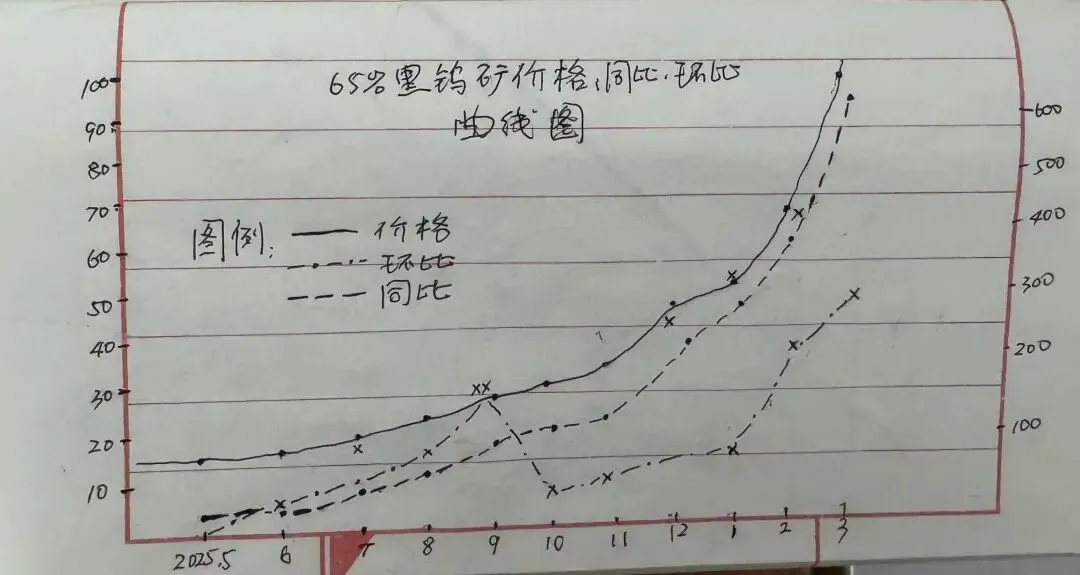 65%黑钨矿价格、同比、环比
曲线图
图例:
价格
环比
同比
100
90
80
70
60
50
40
30
20
10
600
500
400
300
200
100
2025.5 6 7 8 9 10 11 12 1 2 3